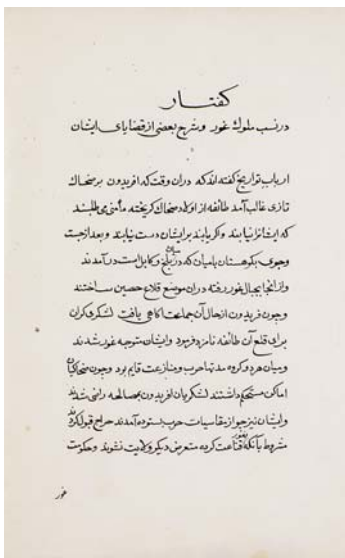 کفتار
در نسب ملوك غور و شرح بعضی از قضایای ایشان
ارباب تواریخ کفته اند که در ان وقت که افریدون بر ضحاك
تازی غالب آمد طائفه از اولاد ضحاك کریخته مأمنی می طلبند
که ایشانرا نیابند و اکر یابند بر ایشان دست نیابند و بعد از جست
وجوی بکوهستان بامیان که میان بلخ و کابل است در آمدند
و از انجا بجبال غور رفته در ان موضع قلاع حصین ساختند
و چون فریدون از حال آن جماعت اکاهی یافت لشکری کران
برای قلع آن طائفه نامزد فرمود و ایشان متوجه غور شدند
و میان هر دو کروه مدتها حرب و منازعت قایم بود و چون ضحاکیان
اماکن مستحکم داشتند لشکریان افریدون بمصالحه راضی شدند
و ایشان نیز چو از مقاسیات حرب بستوده آمدند خراج قبول کردند
مشروط بآنکه بغور قناعت کرده متعرض دیکر ولایت نشوند و حکومت
غور